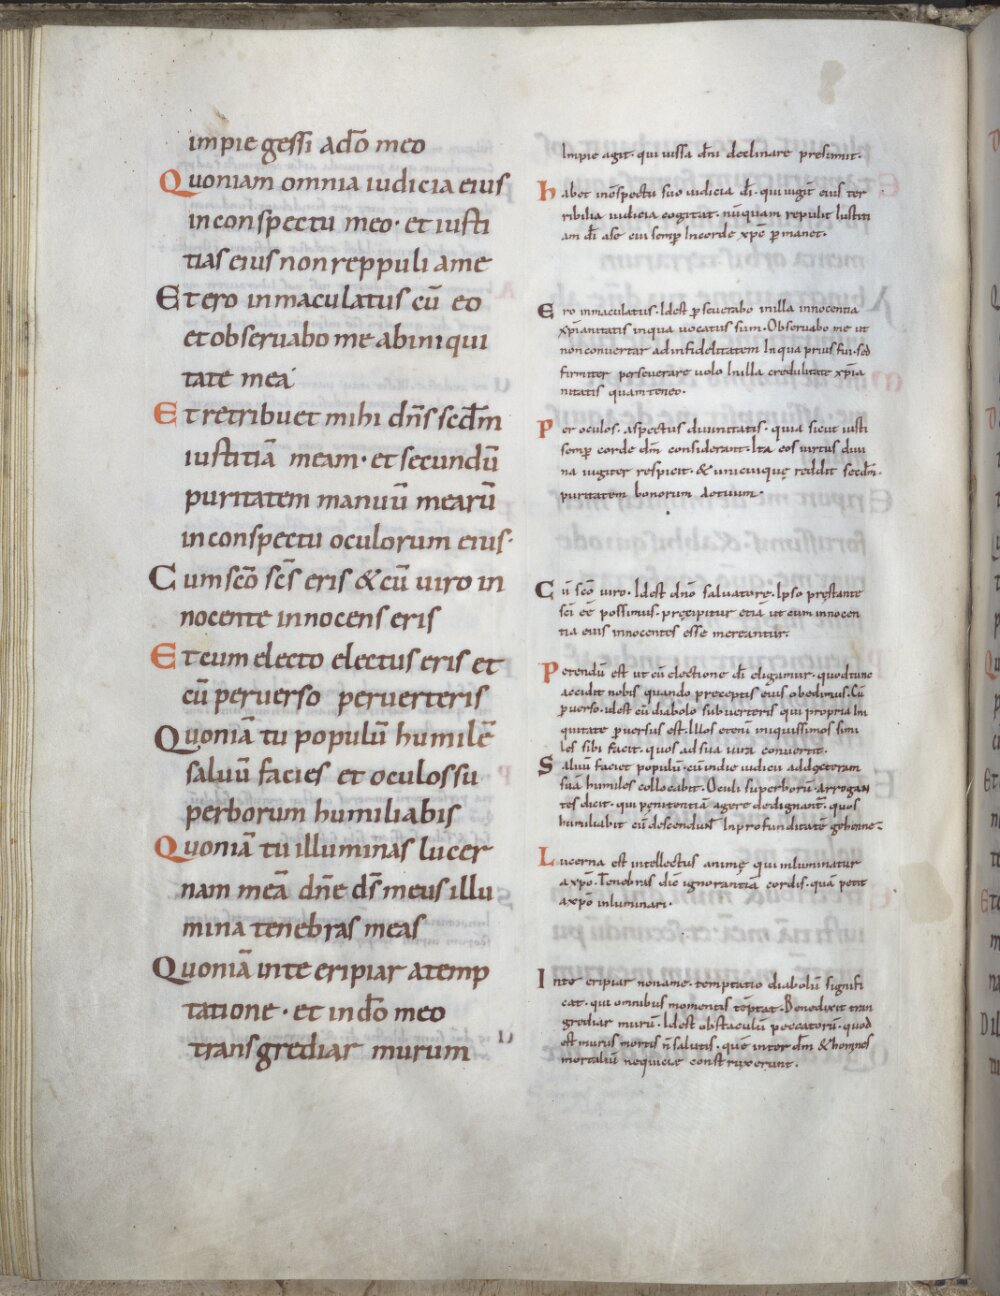 impie gessi a dõ meo
Quoniam omnia iudicia eius
in conspectu meo · et iusti
tias eius non reppuli a me
Et ero inmaculatus cū eo
et observabo me ab iniqui
tate mea
Et retribuet mihi dn̄s secdm̄
iustitiā meam · et secundū
puritatem manuū mearū
in conspectu oculorum eius ·
Cum scō scs̄ eris & cū viro in
nocente innocens eris
Et cum electo electus eris et
cū perverso perverteris
Quoniā tu populū humilē
salvū facies et oculos su
perborum humiliabis
Quoniā tu illuminas lucer
nam meā dn̄e ds̄ meus illu
mina tenebras meas
Quoniā in te eripiar a temp
tatione · et in dō meo
transgrediar murum
Impie agit · qui iussa dn̄i declinare presumit ·
Habet in cspectu suo iudicia dī · qui iugit eius ter
ribilia iudicia cogitat · nūquam repulit iustiti
am dī a se cui semp in corde xpc̄ pmanet ·
Ero inmaculatus · Idest pseverabo in illa innocentia
xp̄ianitatis in qua vocatus sum · Observabo me ut
non convertar ad infidelitatem in qua prius fui · sed
firmiter perseverare volo in illa credulitate xp̄ia
nitatis quam teneo ·
Per oculos · aspectus divinitatis · quia sicut iusti
semp corde dm̄ considerant · Ita eos virtus divi
na iugiter respicit · & unicuique reddit secdm̄ ·
puritatem bonorum actuum ·
Cū scō viro · Idest dnō salvatore · Ipso pręstante
sci ēē possimus · pręcipitur etiā ut cum innocen
tia eius innocentes esse mereantur ·
Petendū est ut cū electione dī eligamur · quod tunc
accidit nobis quando preceptis eius obedimus · Cū
pverso · idest cū diabolo subverteris qui propria in
iquitate pversus est · Illos etenī iniquissimos simi
les sibi facit · quos ad sua vitia convertit ·
Salvū faciet populū · cū in die iudicii ad dexteram
suā humiles collocabit · Oculi superborū · arrogan
tes dicit · qui penitentiā agere dedignant · quos
humiliabit cū descendunt in profunditatē gehennę ·
Lucerna est intellectus animę qui inluminatur
a xpō · Tenebras dic̄ ignorantiā cordis · quā petit
a xpō inluminari ·
In te eripiar non a me · temptatio diabolū signifi
cat · qui omnibus momentis tēptat · Bene dixit tran
grediar murū · Idest obstaculū peccatorū · quod
est murus mortis n̄ salutis · quē inter dm̄ & homines
mortaliū nequicię construxerunt ·